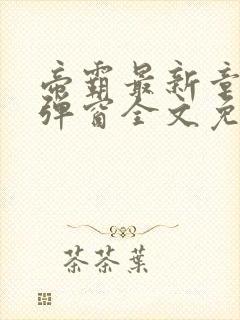 帝霸最新章
弹窗全文免
茶茶葉